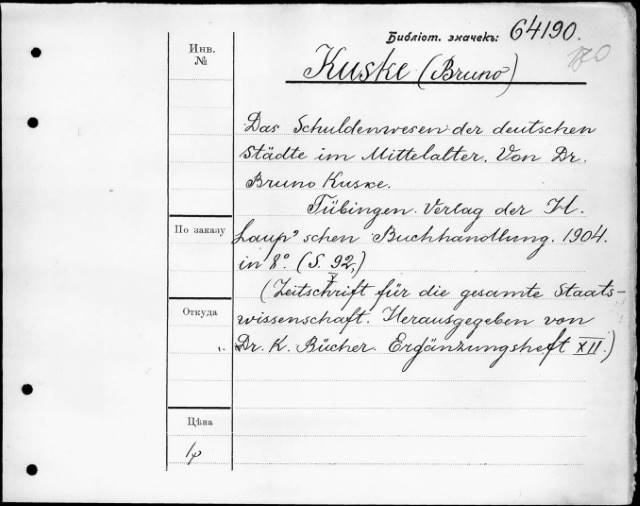 Библіот. значекъ: 64190.
Инв.
№
Kuske (Bruno)
Das Schuldenwesen der deutschen
Städte im Mittelalter. Von Dr.
Bruno Kuske.
Tübingen. Verlag der H.
По заказу
Laup'schen Buchhandlung. 1904.
in 8°. (S. 92,)
(Zeitschrift für die gesamte Staats-
Откуда
wissenschaft. Herausgegeben von
Dr. K. Bücher. Ergänzungsheft XII.)
Цѣна